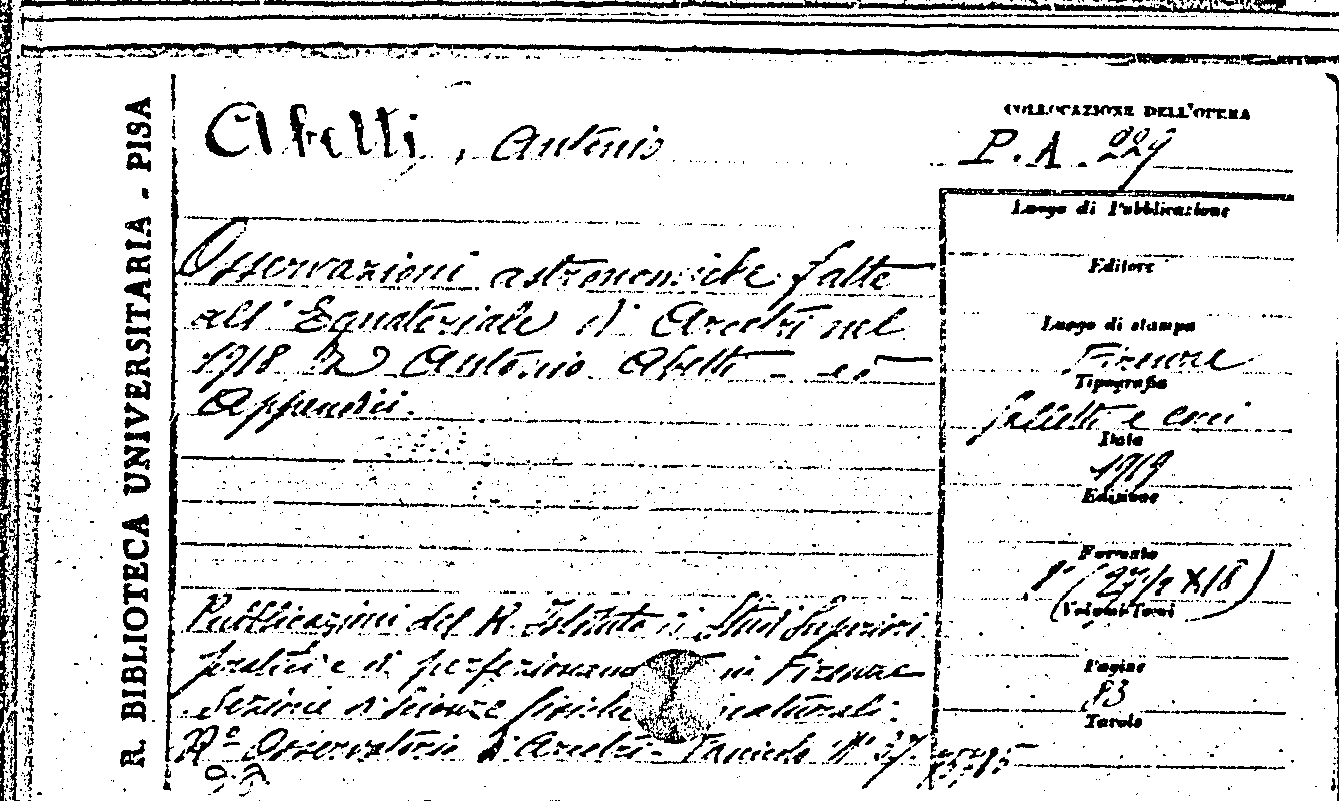 R. BIBLIOTECA UNIVERSITARIA - PISA
Abetti, Antonio
COLLOCAZIONE DELL'OPERA
P. A. 229
Osservazioni astronomiche fatte
all'Equatoriale di Arcetri nel
1918 da Antonio Abetti - ed
Appendici.
Luogo di Pubblicazione
Editore
Luogo di stampa
Firenze
Tipografia
Galletti e Cocci
Data
1919
Edizione
Formato
8° (27 1/2 X 18)
Volumi Tomi
Pagine
83
Tavole
Pubblicazioni del R. Istituto di Studi Superiori
pratici e di perfezionamento in Firenze
Sezione di Scienze fisiche e naturali.
R° Osservatorio di Arcetri - Fascicolo N° 37.